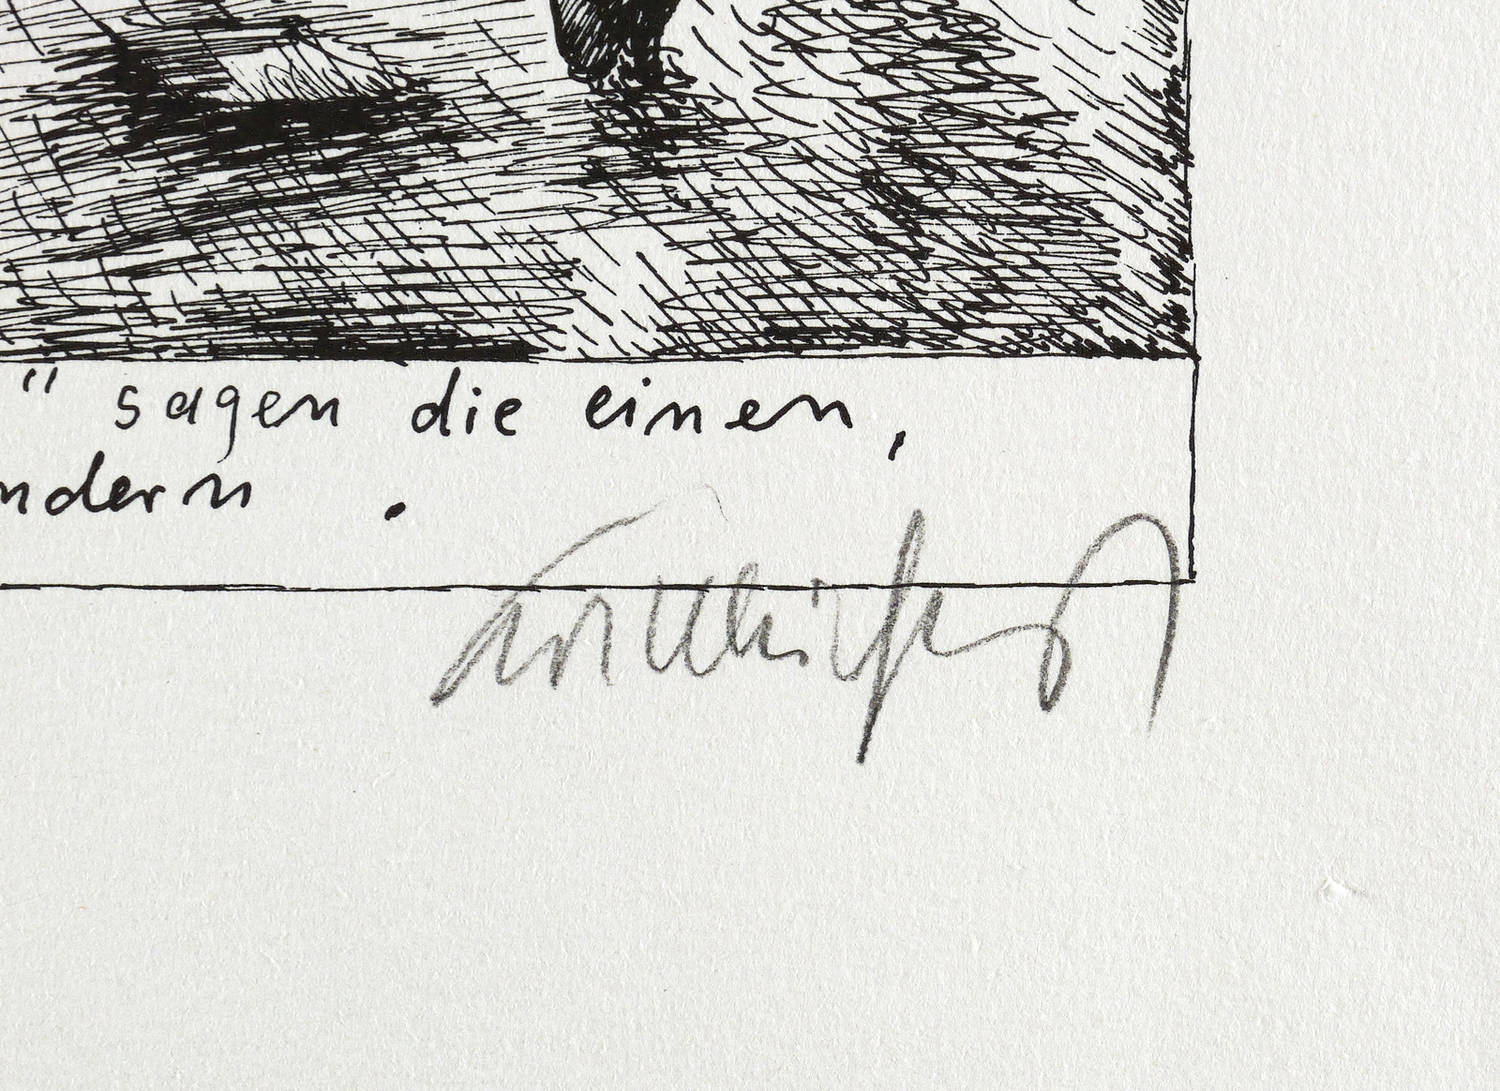 " sagen die einen,
ndern .